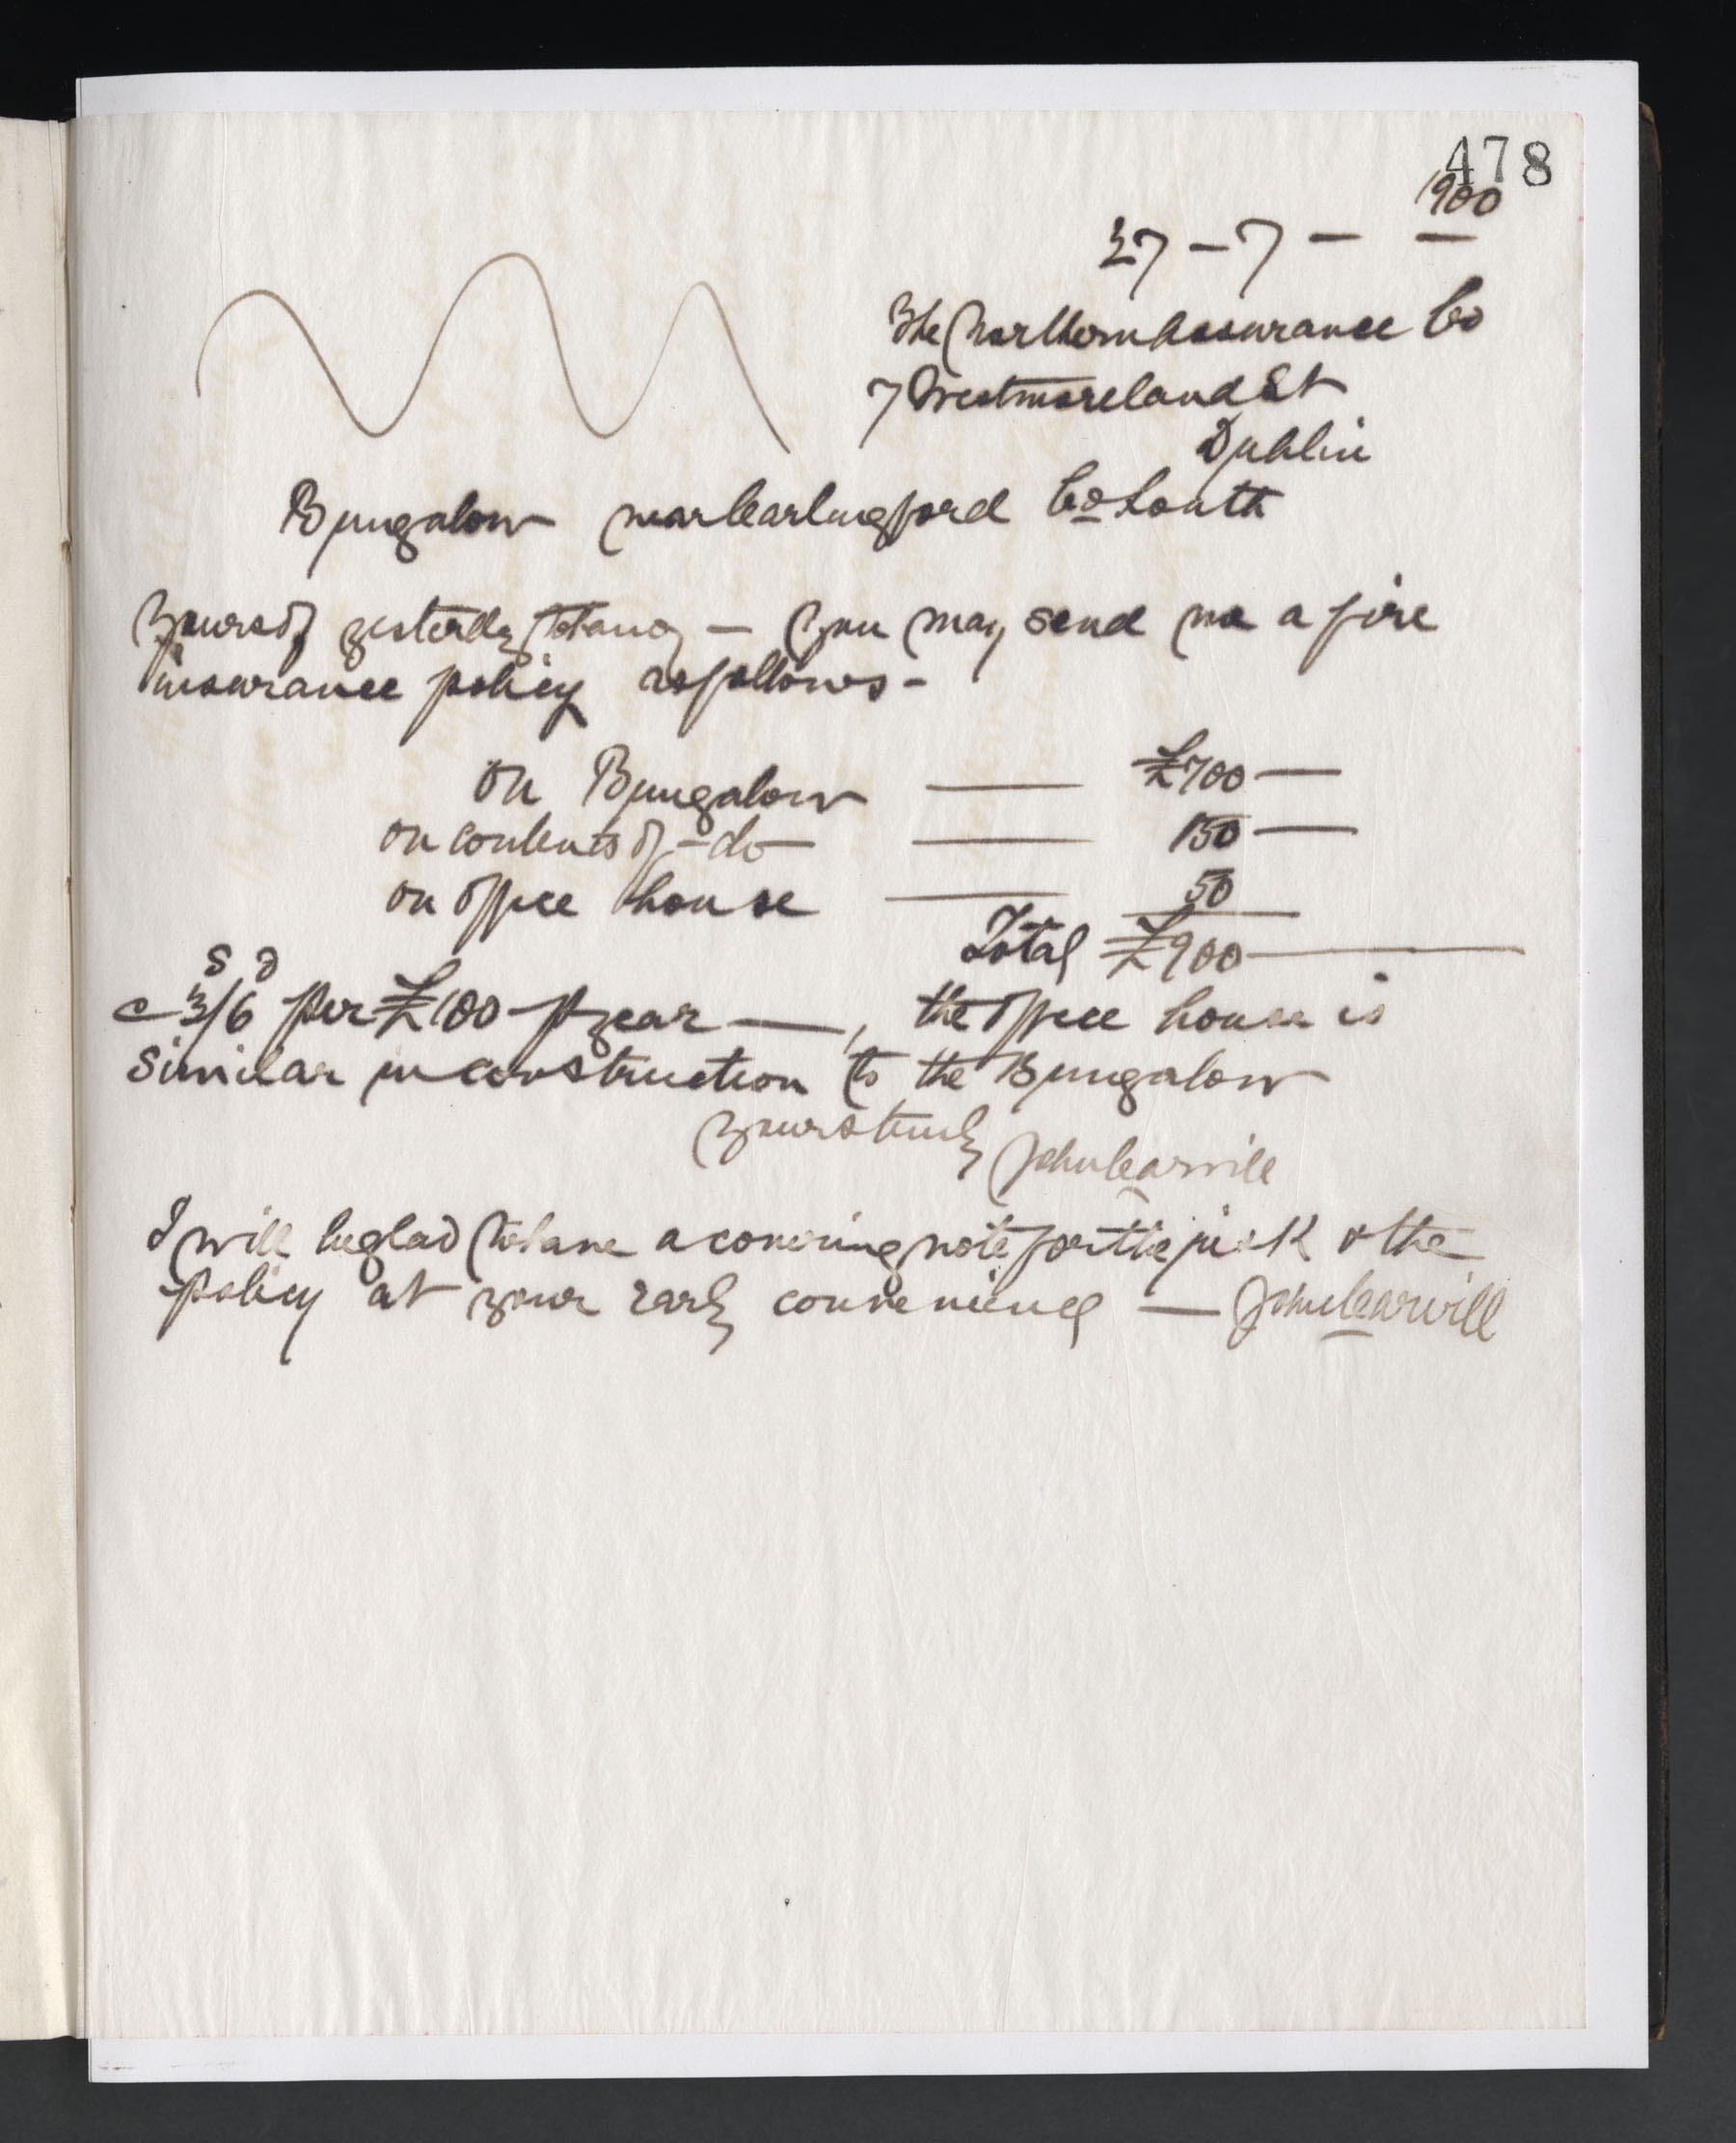 478
1900
27 - 7 - —
The Northern Assurance Co
7 Westmoreland St
Dublin
Bungalow near Carlingford Co Louth
Yours of yesterday to hand — You may send me a fire
insurance policy as follows -
on Bungalow — £700 —
on contents of - do — 150 —
on office house — 50
Total £900 —
s d
@ 3/6 per £100 p year —, the office house is
similar in construction to the Bungalow
Yours truly John Carvill
I will be glad to have a covering note for the risk & the
policy at your early convenience — John Carvill